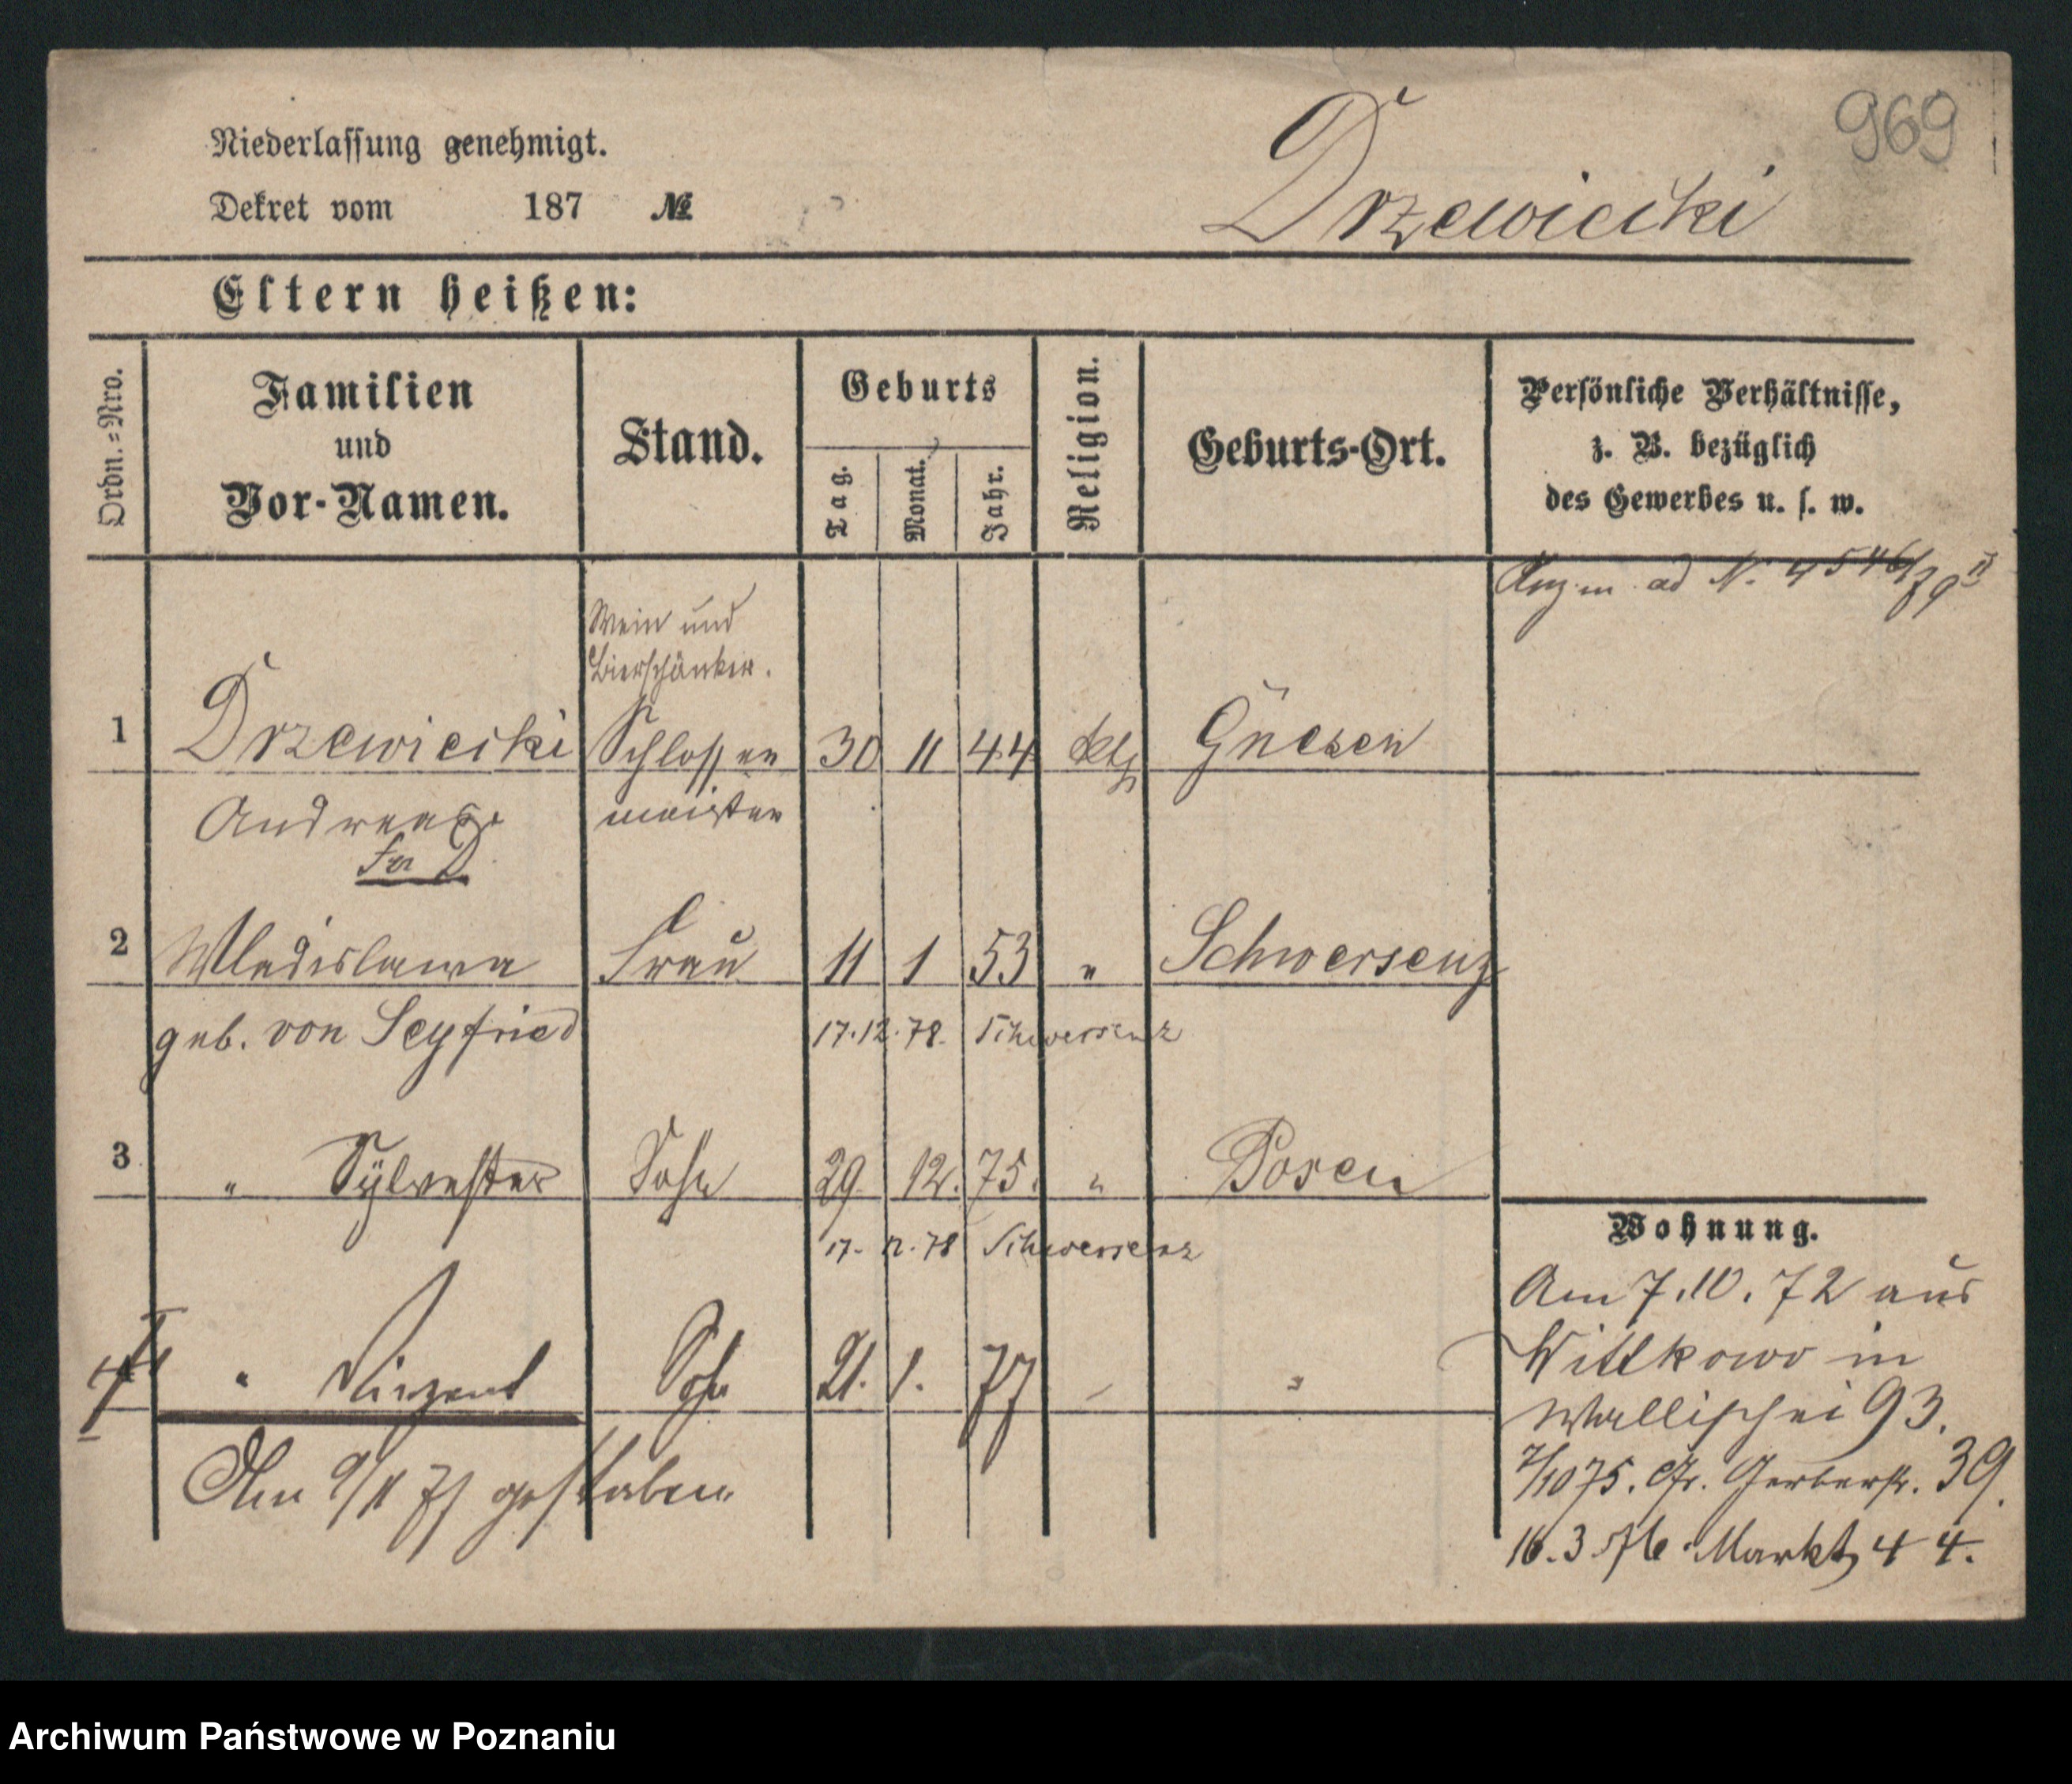 969
Niederlassung genehmigt.
Dekret vom 187 №
Drzewiecki
Eltern heißen:
Ordn.=Nro.
Familien
und
Vor-Namen.
Stand.
Geburts
Tag.
Monat.
Jahr.
Religion.
Geburts-Ort.
Persönliche Verhältnisse,
z. B. bezüglich
des Gewerbes u. s. w.
ad N: 4546/79 II
Wein und
Bierschänker.
1 Drzewiecki Schlosser 30 11 44 kth Gnesen
Andreas meister
2 Wladislawa Frau 11 1 53 " Schwersenz
geb. von Seyfried 17.12.78. Schwersenz
3 " Sylvester Sohn 29 12. 75. " Posen
17. 12. 78 Schwersenz
4 " Vinzent Sohn 21. 1. 77 " "
Am 9/11 77 gestorben
Wohnung.
Am 7.10.72 aus
Wittkowo in
Wallischei 93.
7/10 75. Gr. Gerberstr. 39.
16.3.76. Markt 44.
Archiwum Państwowe w Poznaniu